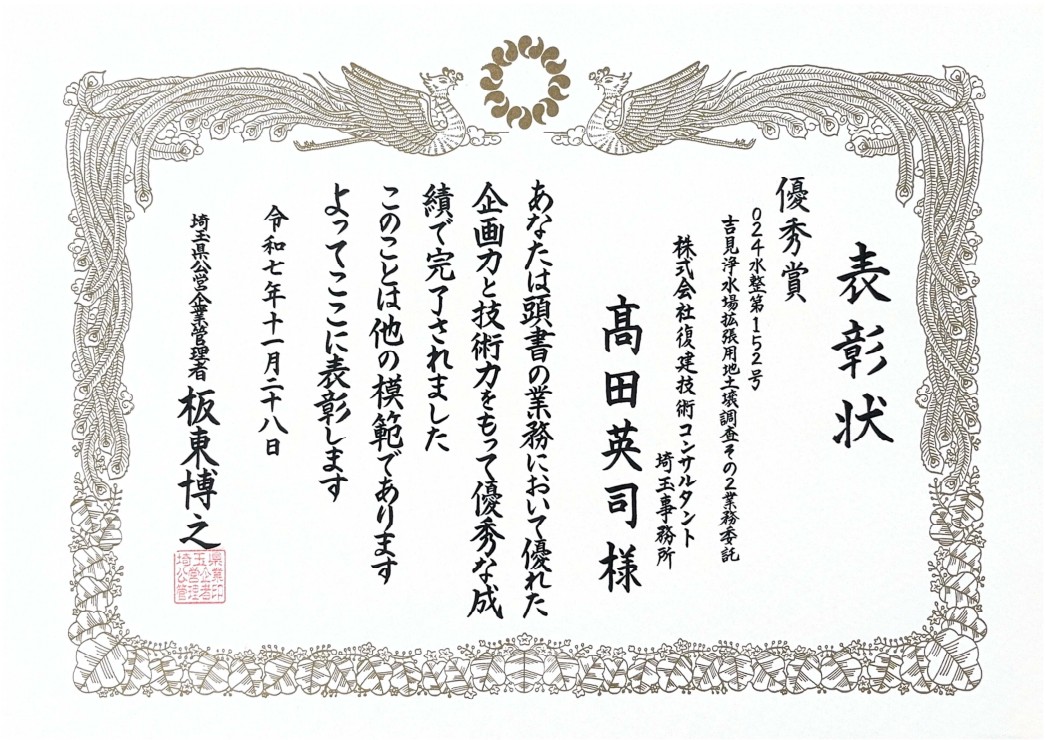 表彰状
優秀賞
024水整第152号
吉見浄水場拡張用地土壌調査その2業務委託
株式会社復建技術コンサルタント
埼玉事務所
髙田英司様
あなたは頭書の業務において優れた
企画力と技術力をもって優秀な成
績で完了されました
このことは他の模範であります
よってここに表彰します
令和七年十一月二十八日
埼玉県公営企業管理者 板東博之
埼玉県
公営企業
管理者印